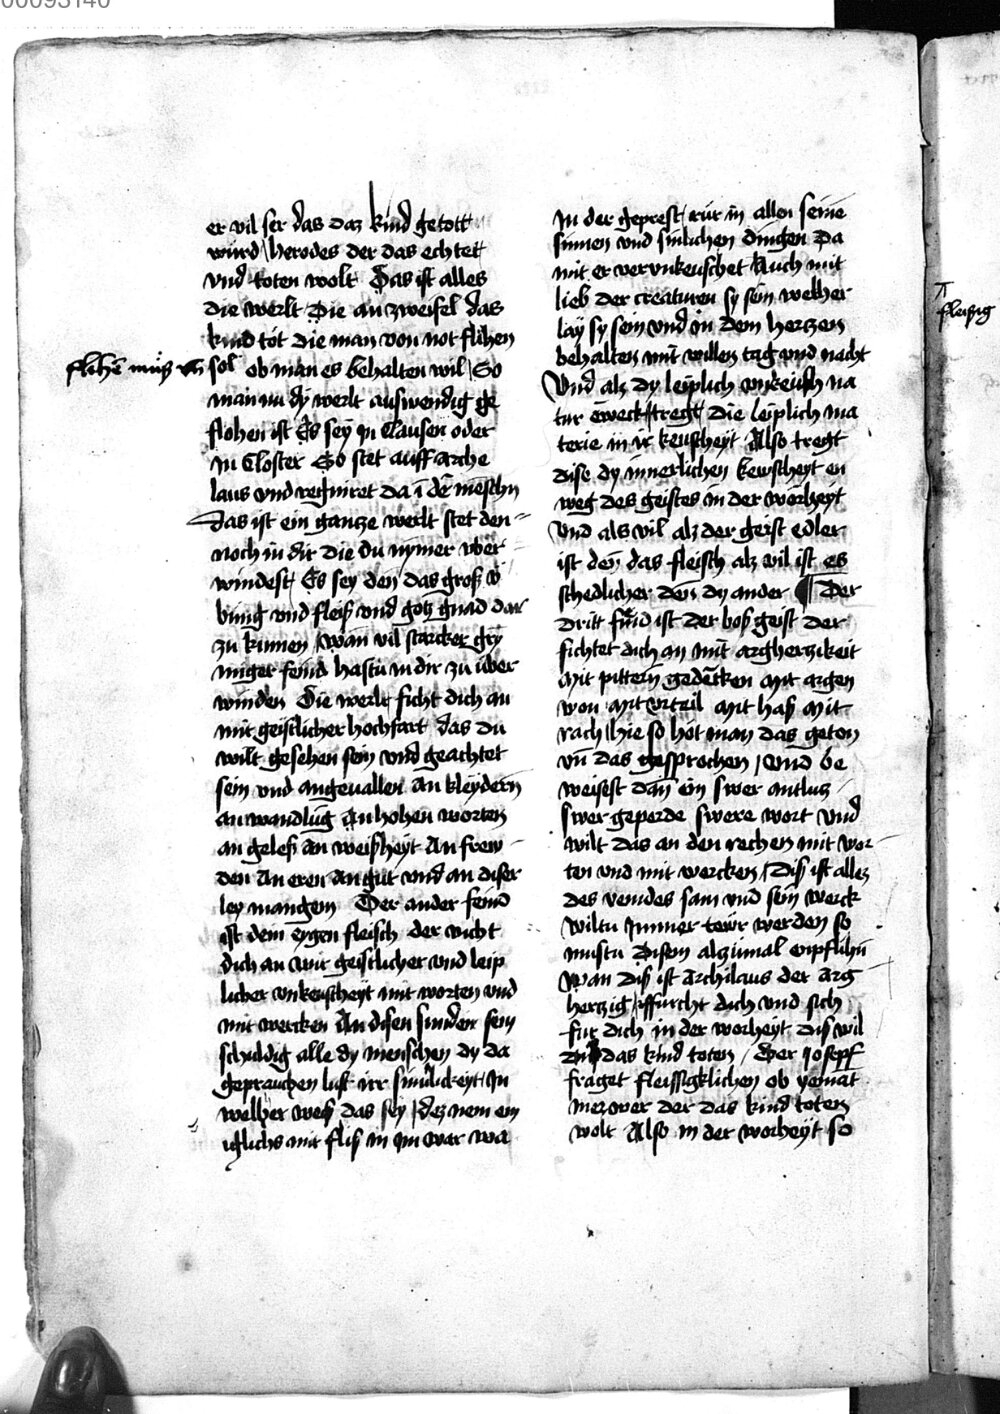 00093140
er vil ser das daz kind getott
würd herodes der das echtet
vnd toten wolt Das ist alles
die werlt Die an zweifel das
kind töt die man von not flihen
flihē müs vn̄ sol ob man es behalten wil So
man nu dy werlt auswendig ge
flohen ist Es sey in Clausen oder
in Closter So stet auff arche
laus vnd regniret da ī dē mēschn
das ist ein gantze werlt stet den
noch in dir die du nymer vber
windest Es sey den das groß v̈
bung vnd fleiß vnd gotz gnad dar
zu kumen wan vil starcker gry
miger feind hastu in dir zu über
winden Die werlt ficht dich an
mit geistlicher hochfart das du
wilt gesehen sein vnd geachtet
sein vnd angeuallen An kleydern
an wandlūg An hohen worten
an geleß An weißheyt An frew
den An eren An gut vnd an diser
ley mangem Der ander feind
ist dein eygen fleisch der vicht
dich an mit geistlicher vnd leip
licher vnkeuscheyt mit worten vnd
mit wercken An disen sunden sein
schuldig alle dy menschen dy da
geprauchen lust irr sinlickeyt In
welher weiß das sey dez nem ein
iglichs mit fliß in im war wa
In der geprest rür in allen seine
sinnen vnd sinlichen dingen Da
mit er vervnkeuschet Auch mit
lieb der creaturen sy sein welher
lay sy sein vnd in dem hertzen
behalten mit willen tag vnd nacht
Vnd alz dy leiplich vnkeush na
tur eweck tregt die leiplich ma
terie in ir keuscheyt Also tregt
dise dy innerlichen kewscheyt en
weg des geistes in der worheyt
Vnd als vil alz der geist edler
ist den̄ das fleisch alz vil ist es
schedlicher den̄ dy ander ¶ Der
dritt find ist der boß geist der
fichtet dich an mit argherzikeit
mit pittern gedēcken mit argen
won mit vrteil mit haß mit
rach hie so hot man das geton
vn̄ das gesprochen vnd be
weisest dan̄ ein swer antlutz
swer geperde swere wort vnd
wilt das an den rechen mit wor
ten vnd mit wercken Diß ist allez
des veindes sam vnd sein werck
wiltu immer tewr werden so
mustu disem alzumal enpflihn̄
wan diß ist archilaus der arg
hertzig fürcht dich vnd sich
fur dich in der worheyt diß wil
das kind toten Der Joseph
fraget fleissigklichen ob yemāt
mer wer der das kind toten
wolt Also in der worheyt so
fleißig